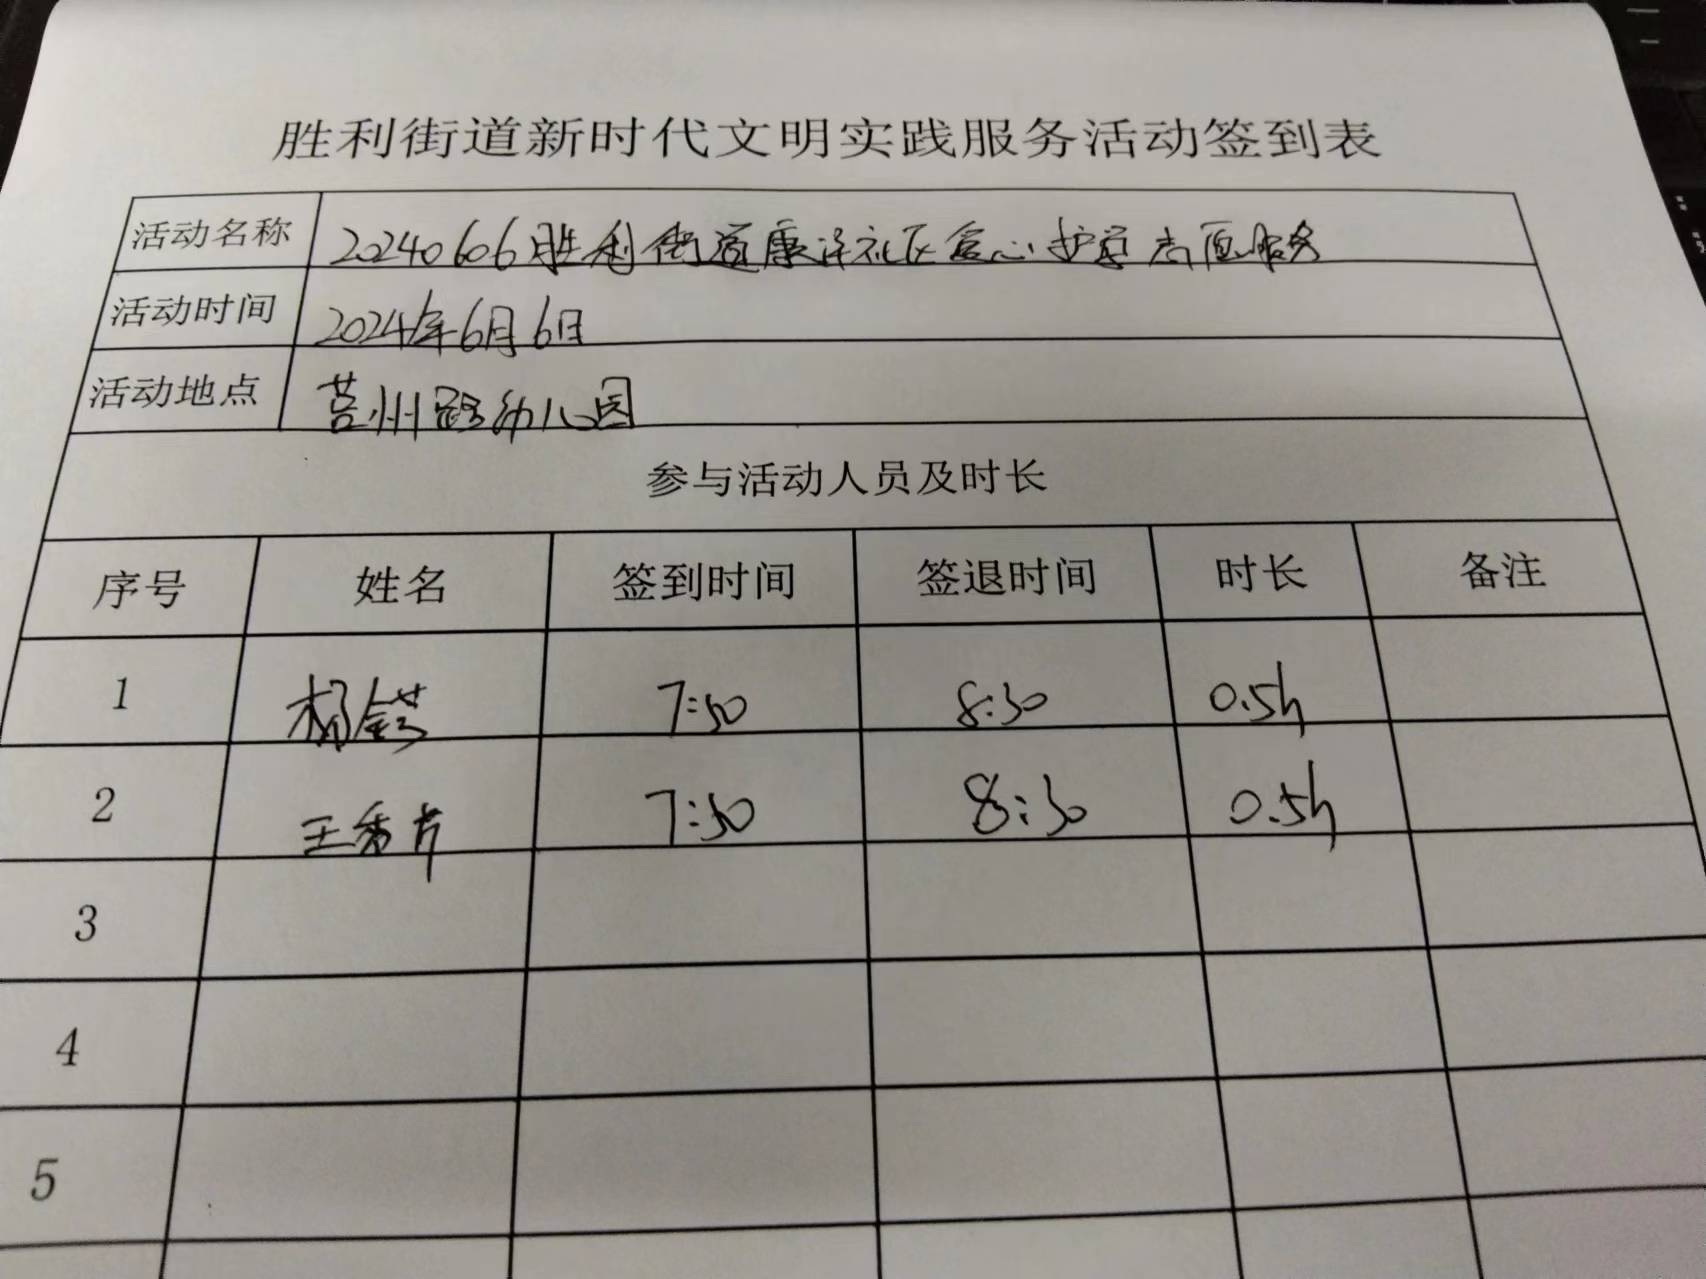 胜利街道新时代文明实践服务活动签到表
活动名称 20240606胜利街道康泽社区爱心护学志愿服务
活动时间 2024年6月6日
活动地点 莒州路幼儿园
参与活动人员及时长
序号 姓名 签到时间 签退时间 时长 备注
1 杨 7:50 8:30 0.5h
2 王秀芹 7:50 8:30 0.5h
3
4
5